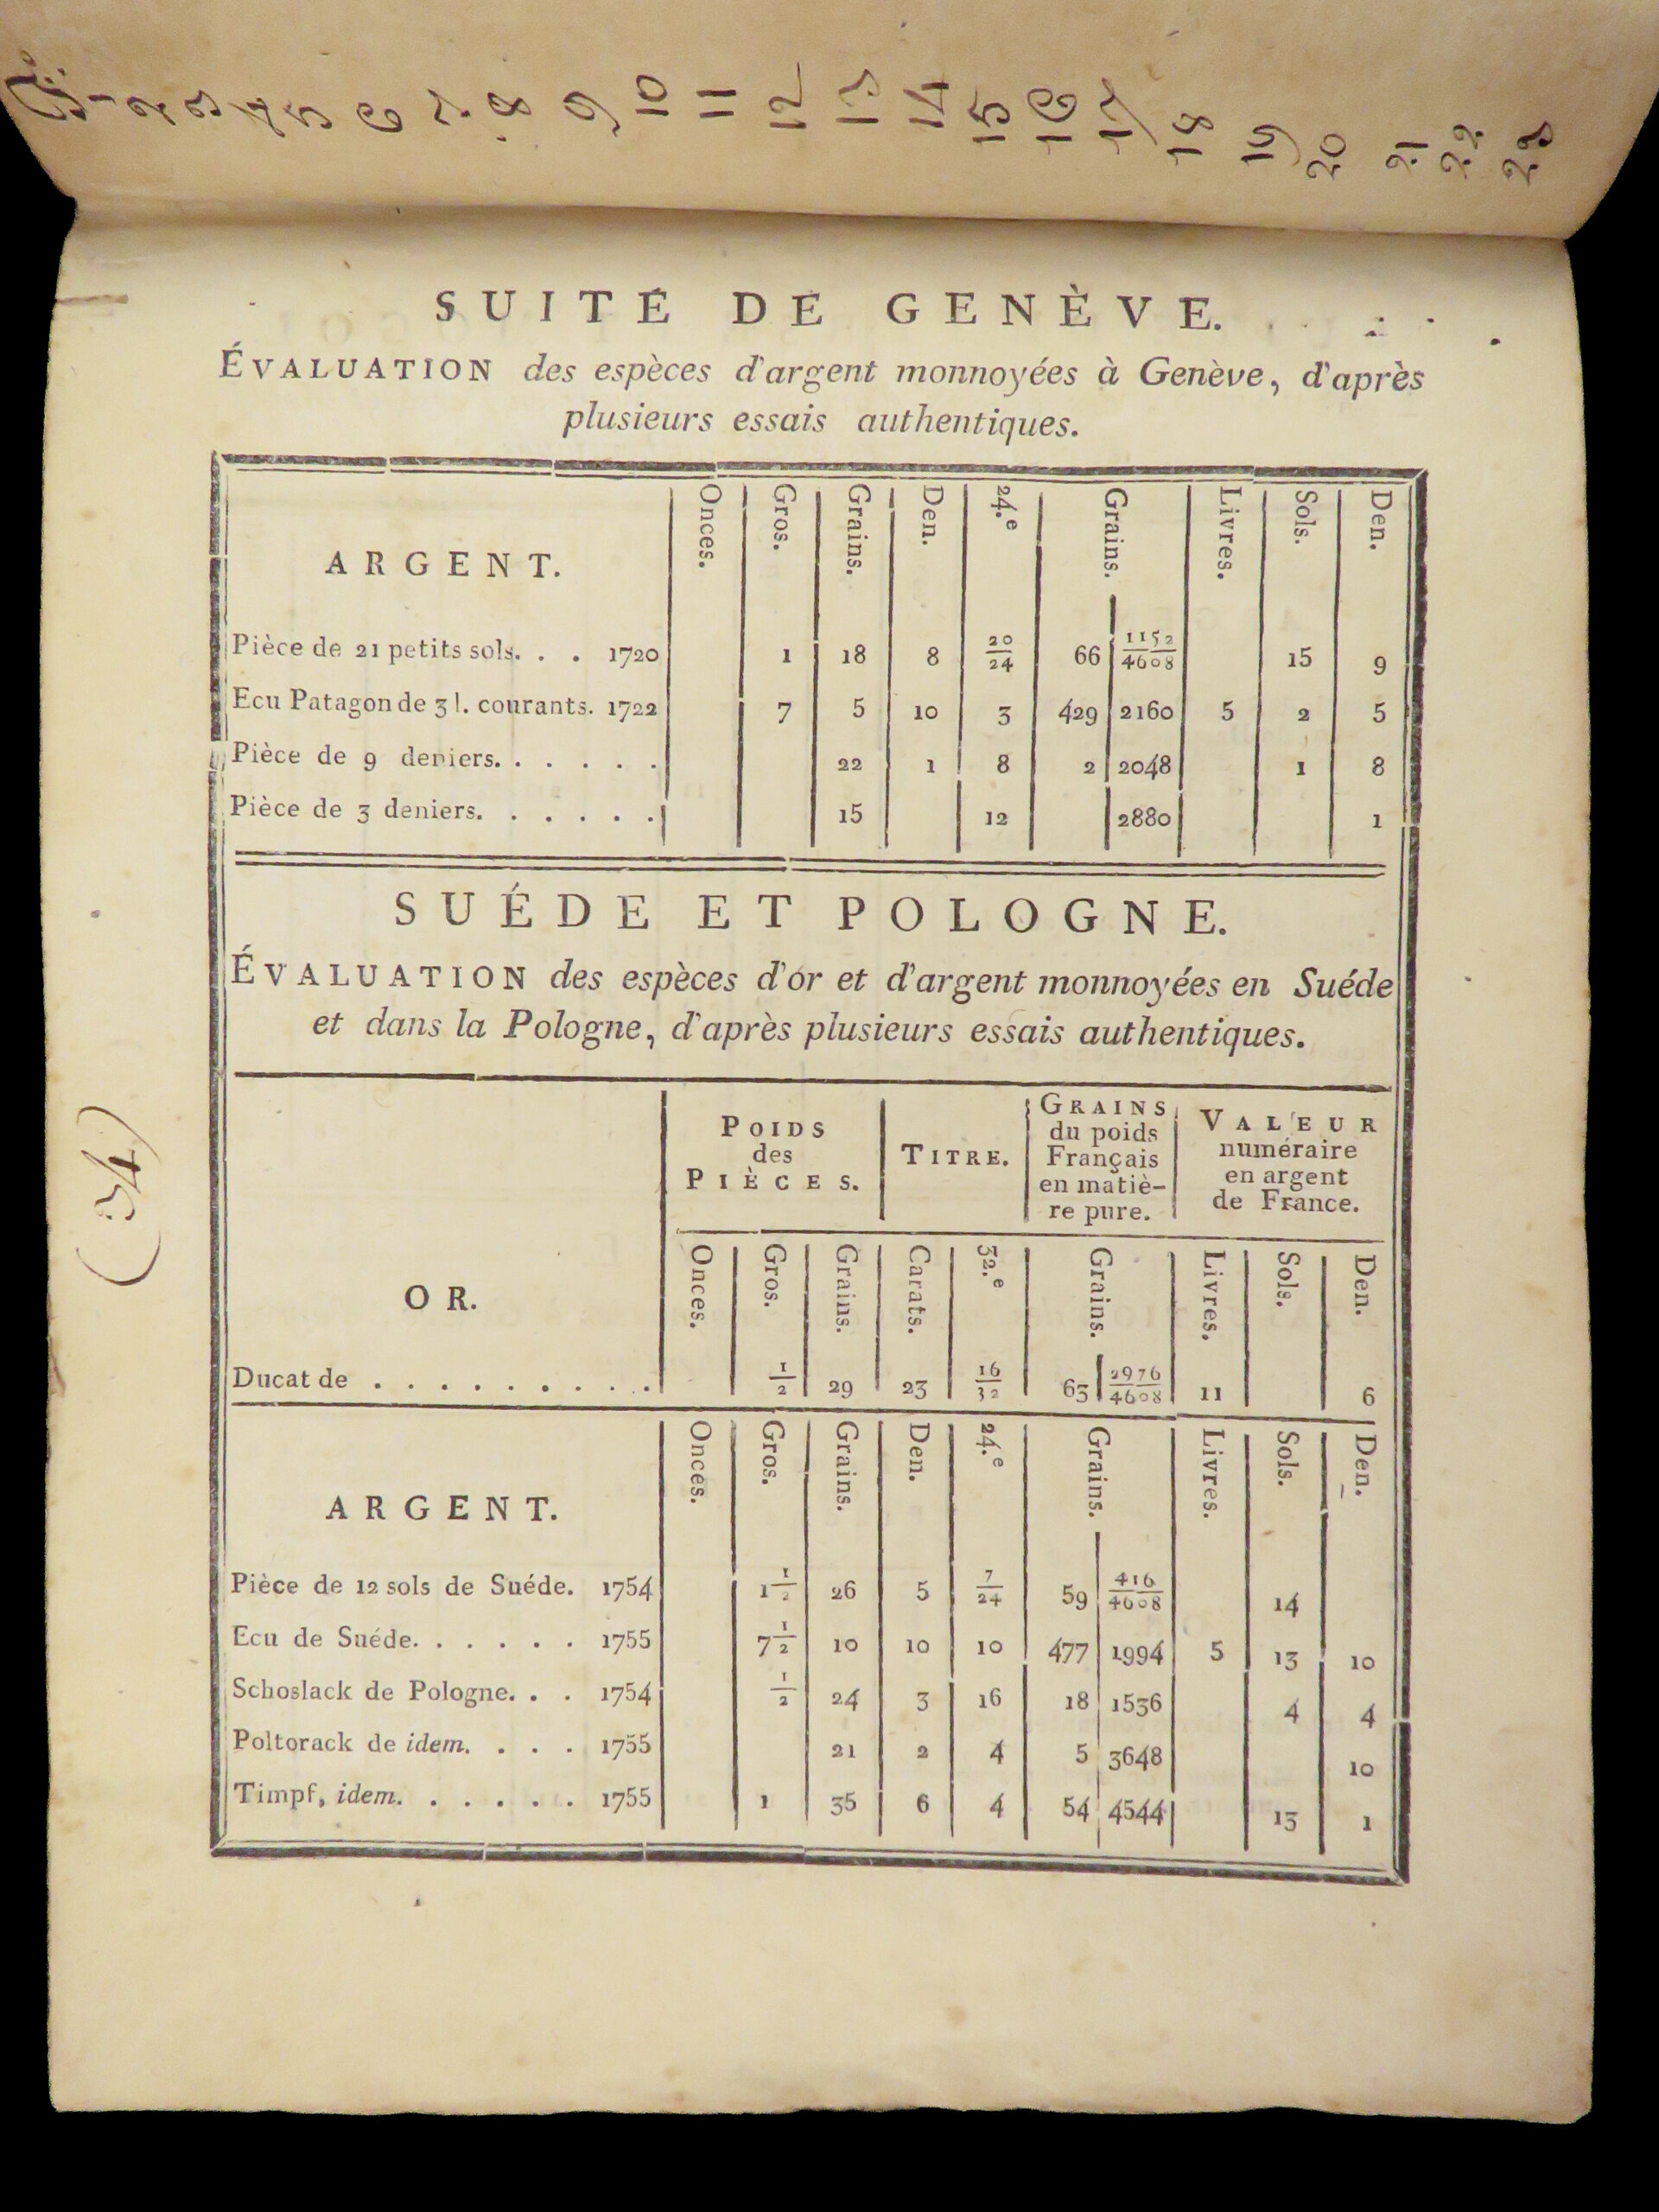 1 2 3 4 5 6 7 8 9 10 11 12 13 14 15 16 17 18 19 20 21 22 23
SUITE DE GENÈVE.
ÉVALUATION des espèces d'argent monnoyées à Genève, d'après
plusieurs essais authentiques.
ARGENT. Onces. Gros. Grains. Den. 24.e Grains. Livres. Sols. Den.
Pièce de 21 petits sols. . . 1720 1 18 8 20/24 66 1152/4608 15 9
Ecu Patagon de 3 l. courants. 1722 7 5 10 3 429 2160 5 2 5
Pièce de 9 deniers. . . . . . 22 1 8 2 2048 1 8
Pièce de 3 deniers. . . . . . 15 12 2880 1
SUÉDE ET POLOGNE.
ÉVALUATION des espèces d'or et d'argent monnoyées en Suéde
et dans la Pologne, d'après plusieurs essais authentiques.
POIDS
des
PIÈCES.
TITRE.
GRAINS
du poids
Français
en matiè-
re pure.
VALEUR
numéraire
en argent
de France.
(34)
OR. Onces. Gros. Grains. Carats. 32.e Grains. Livres. Sols. Den.
Ducat de . . . . . . . . . . 1/2 29 23 16/32 63 2976/4608 11 6
ARGENT. Onces. Gros. Grains. Den. 24.e Grains. Livres. Sols. Den.
Pièce de 12 sols de Suéde. 1754 1 1/2 26 5 7/24 59 416/4608 14
Ecu de Suéde. . . . . . 1755 7 1/2 10 10 10 477 1994 5 13 10
Schoslack de Pologne. . . 1754 1/2 24 3 16 18 1536 4 4
Poltorack de idem. . . . 1755 21 2 4 5 3648 10
Timpf, idem. . . . . . 1755 1 35 6 4 54 4544 13 1